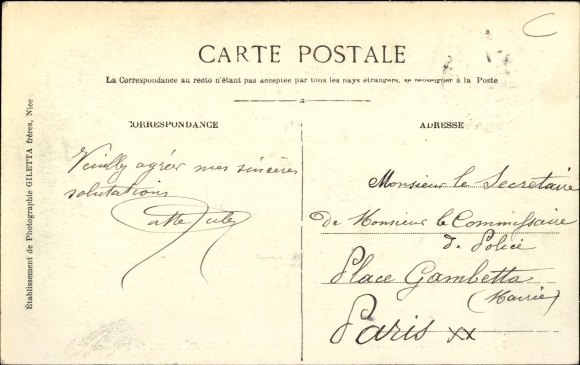 C
CARTE POSTALE
La Correspondance au recto n'étant pas acceptée par tous les pays étrangers, se renseigner à la Poste
CORRESPONDANCE
Veuillez agréer mes sincères
salutations
ADRESSE
Monsieur le Secrétaire
de Monsieur le Commissaire
de Police
Place Gambetta
(Mairie)
Paris XX
Établissement de Photographie GILETTA frères, Nice